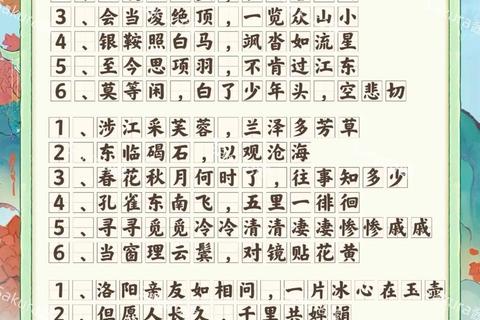 3、会当凌绝顶，一览众山小
4、银鞍照白马，飒沓如流星
5、至今思项羽，不肯过江东
6、莫等闲，白了少年头，空悲切
1、涉江采芙蓉，兰泽多芳草
2、东临碣石，以观沧海
3、春花秋月何时了，往事知多少
4、孔雀东南飞，五里一徘徊
5、寻寻觅觅冷冷清清凄凄惨惨戚戚
6、当窗理云鬓，对镜贴花黄
1、洛阳亲友如相问，一片冰心在玉壶
2、但愿人长久，千里共婵娟